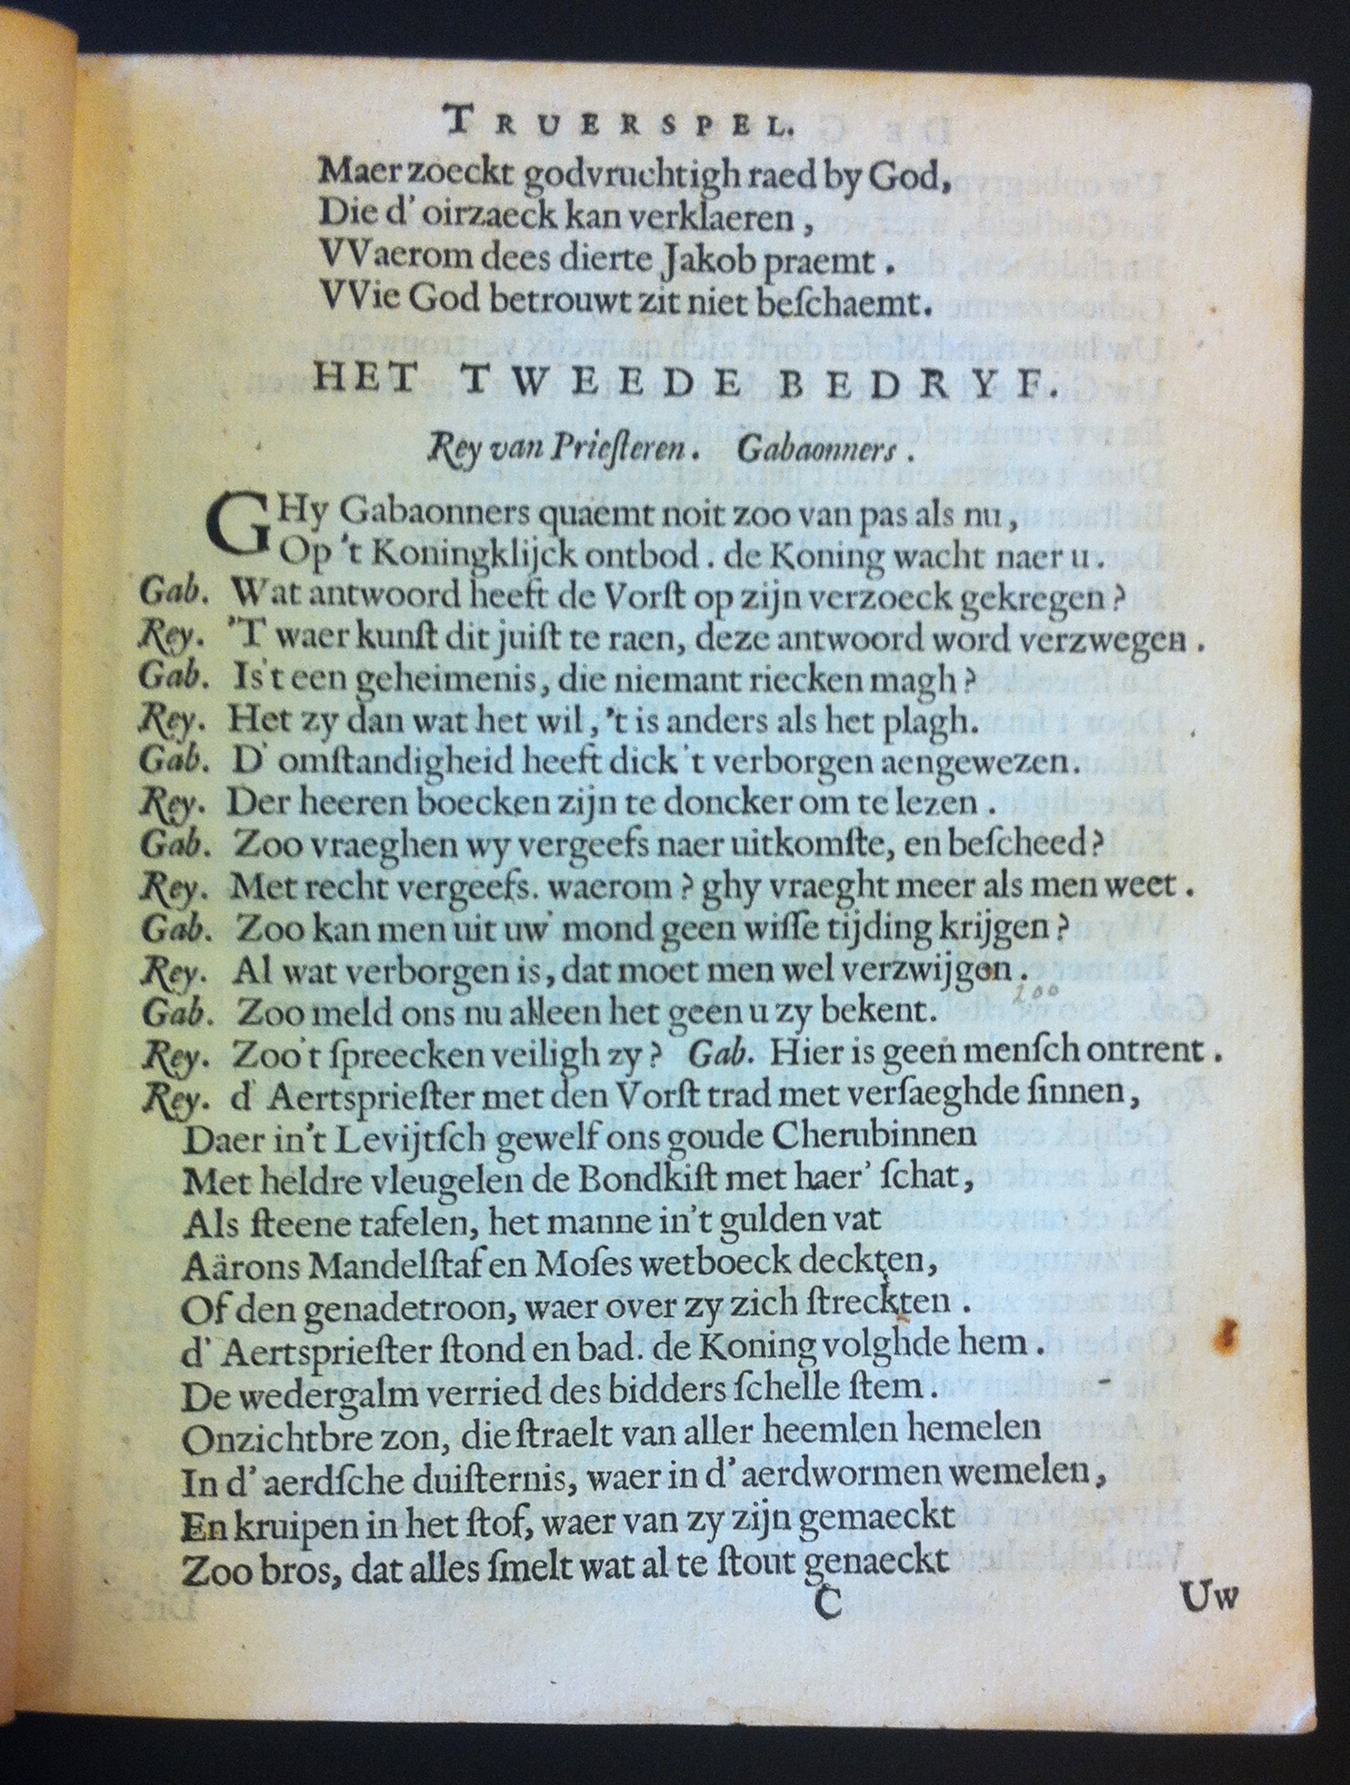 TRUERSPEL.
Maer zoeckt godvruchtigh raed by God,
Die d' oirzaeck kan verklaeren,
VVaerom dees dierte Jakob praemt.
VVie God betrouwt zit niet beſchaemt.
HET TWEEDE BEDRYF.
Rey van Prieſteren. Gabaonners.
GHy Gabaonners quaemt noit zoo van pas als nu,
Op 't Koningklijck ontbod. de Koning wacht naer u.
Gab. Wat antwoord heeft de Vorſt op zijn verzoeck gekregen?
Rey. 'T waer kunſt dit juiſt te raen, deze antwoord word verzwegen.
Gab. Is't een geheimenis, die niemant riecken magh?
Rey. Het zy dan wat het wil, 't is anders als het plagh.
Gab. D' omſtandigheid heeft dick 't verborgen aengewezen.
Rey. Der heeren boecken zijn te doncker om te lezen.
Gab. Zoo vraeghen wy vergeefs naer uitkomſte, en beſcheed?
Rey. Met recht vergeefs. waerom? ghy vraeght meer als men weet.
Gab. Zoo kan men uit uw' mond geen wiſſe tijding krijgen?
Rey. Al wat verborgen is, dat moet men wel verzwijgen.
200
Gab. Zoo meld ons nu alleen het geen u zy bekent.
Rey. Zoo't ſpreecken veiligh zy? Gab. Hier is geen menſch ontrent.
Rey. d' Aertsprieſter met den Vorſt trad met verſaeghde ſinnen,
Daer in't Levijtſch gewelf ons goude Cherubinnen
Met heldre vleugelen de Bondkiſt met haer' ſchat,
Als ſteene tafelen, het manne in't gulden vat
Aärons Mandelſtaf en Moſes wetboeck deckten,
Of den genadetroon, waer over zy zich ſtreckten.
d' Aertsprieſter ſtond en bad. de Koning volghde hem.
De wedergalm verried des bidders ſchelle ſtem.
Onzichtbre zon, die ſtraelt van aller heemlen hemelen
In d' aerdſche duiſternis, waer in d' aerdwormen wemelen,
En kruipen in het ſtof, waer van zy zijn gemaeckt
Zoo bros, dat alles ſmelt wat al te ſtout genaeckt
C
Uw